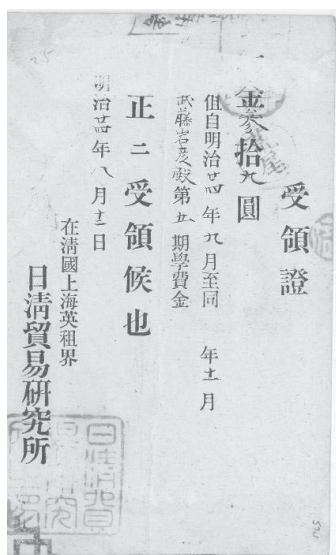 受領證
一金參拾九圓
但自明治廿四年九月至同 年十一月
武藤岩彥殿第五期學費金
正ニ受領候也
明治廿四年八月十三日
在淸國上海英租界
日淸貿易硏究所